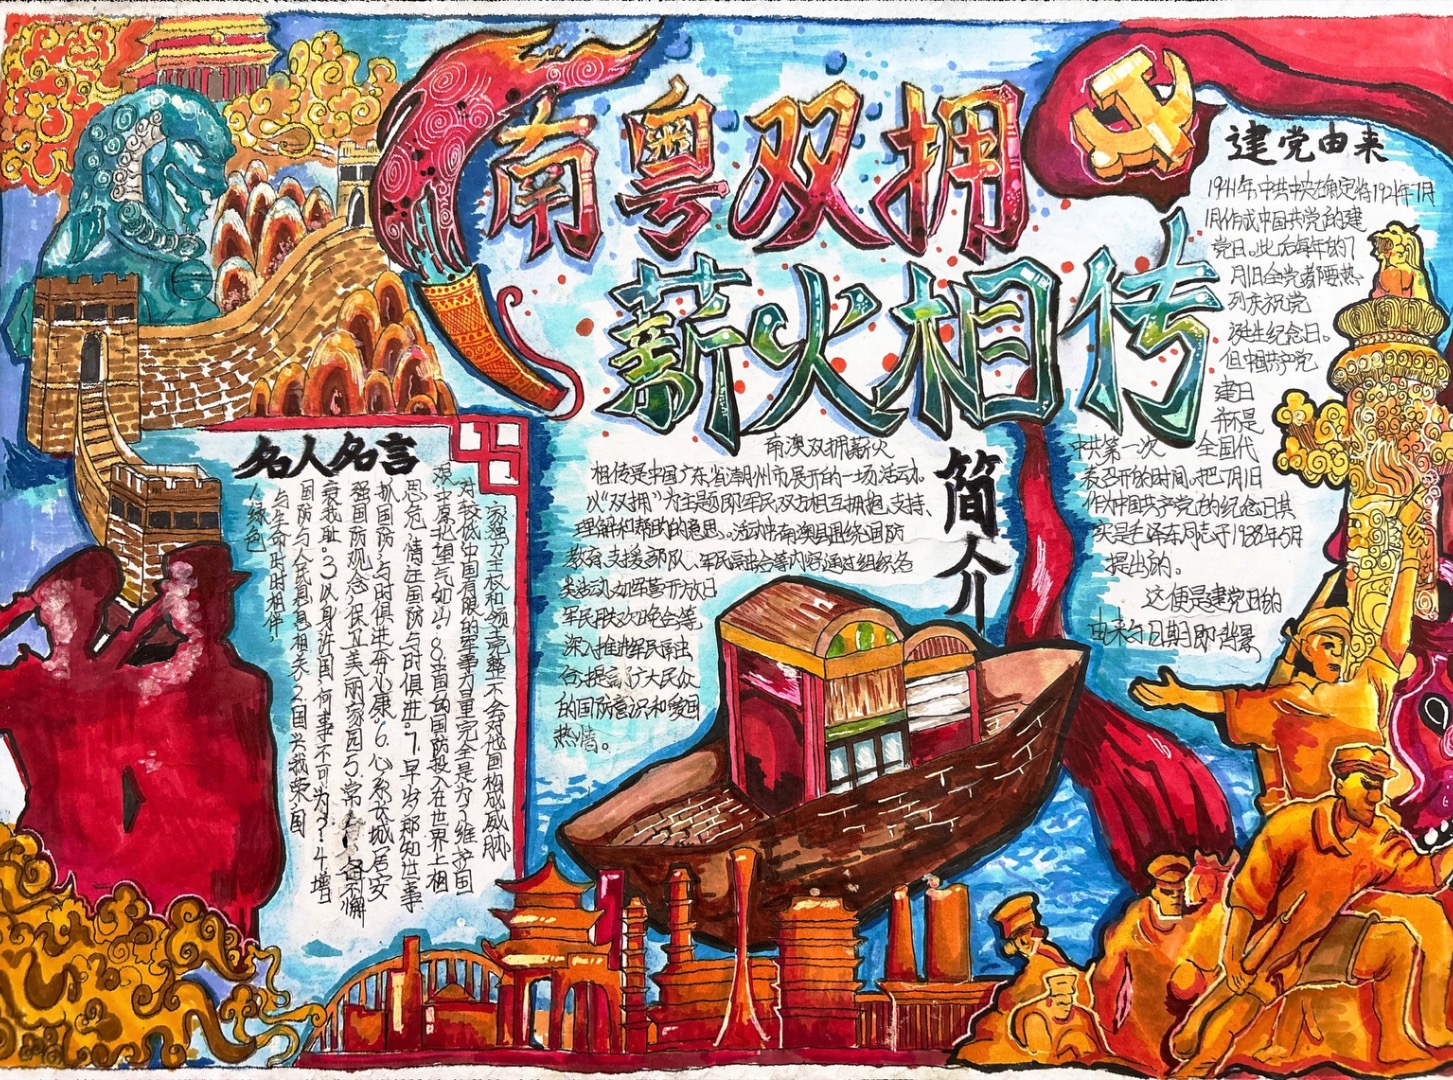 南粤双拥
薪火相传
建党由来
1941年,中共中央确定将1921年7月
1日作成中国共产党的建
党日。此后每年的7
月1日全党都要热
列庆祝党
诞生纪念日。
但中国共产党
建日
并不是
中共第一次 全国代
表召开的时间。把7月1日
作为中国共产党的纪念日其
实是毛泽东同志于1938年5月
提出的。
这便是建党日的
由来与日期即背景
简介
南澳双拥薪火
相传是中国广东省潮州市展开的一场活动,
以“双拥”为主题即军民双方相互拥抱、支持、
理解和帮助的意思。活动中南澳县围绕国防
教育、支援部队、军民融合等内容通过组织各
类活动,如军营开放日
军民联欢晚会等,
深入推进军民融
合,提高了广大民众
的国防意识和爱国
热情。
名人名言
1.绿色
与生命时时相伴
国防与人民息息相关2.国兴我荣国
衰我耻。3.以身许国何事不可为?4.增
强国防观念保卫美丽家园5.常
抓国防与时俱进奔小康。6.心系长城居安
思危,情注国防与时俱进。7.早岁那知世事
艰中原北望气如山8.当前我国国防投入在世界上相
对较低中国有限的军事力量完全是为了维护国
家独立主权和领土完整不会对他国构成威胁